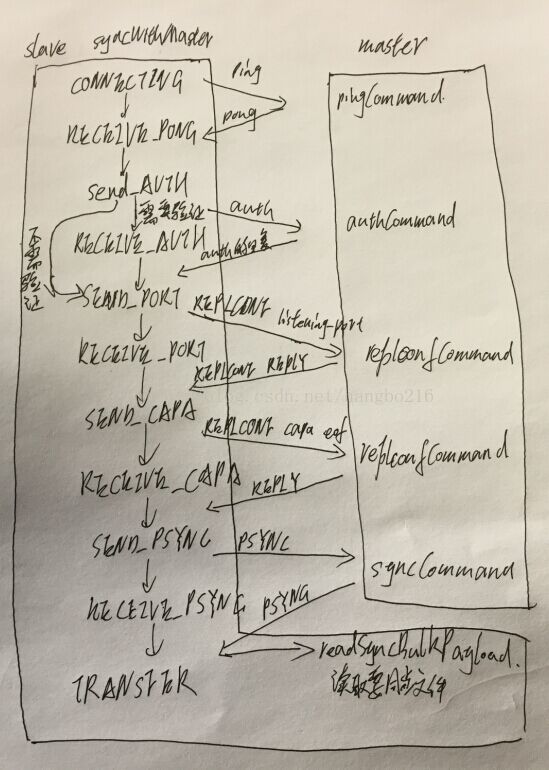 slave syncWithMaster
master
CONNECTING
ping
pingCommand.
pong
RECEIVE_PONG
send_AUTH
需要验证
auth
authCommand
RECEIVE_AUTH
auth的回复
不需验证
SEND_PORT
REPLCONF listening-port
replconfCommand
RECEIVE_PORT
REPLCONF REPLY
blog.csdn.net/nangbo216
SEND_CAPA
REPLCONF capa eof
replconfCommand
RECEIVE_CAPA
REPLY
SEND_PSYNC
PSYNC
syncCommand
RECEIVE_PSYNC
PSYNC
readSyncBulkPayload.
TRANSFER
读取要同步文件